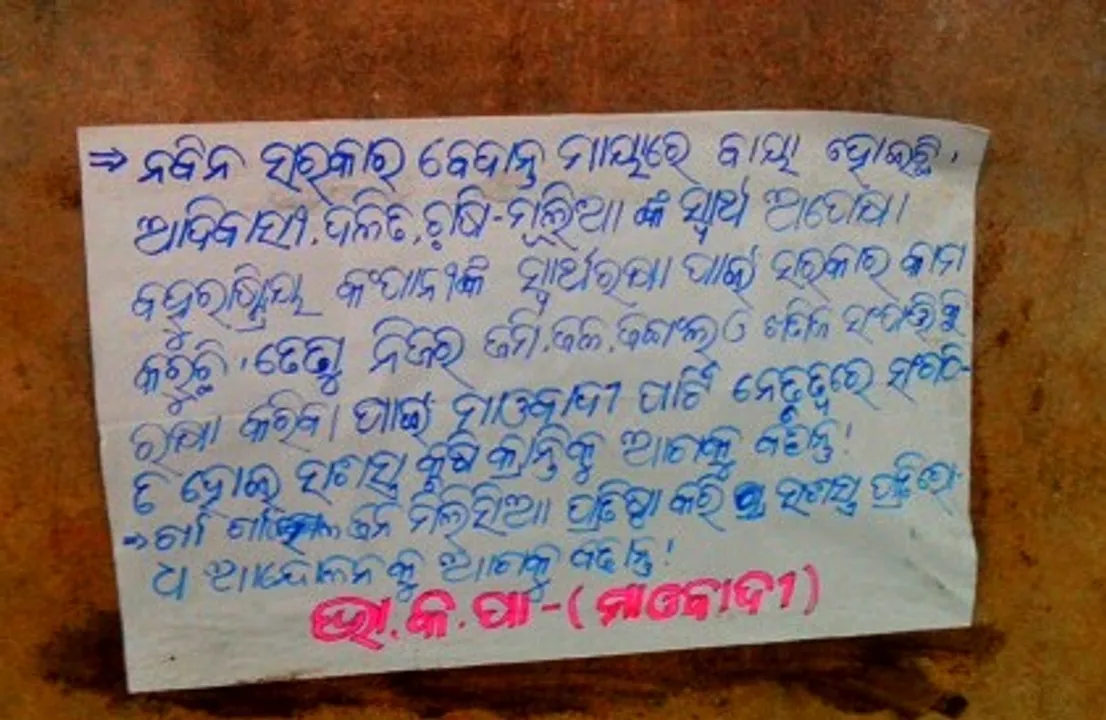 ⇒ ନବିନ ସରକାର ବେଦାନ୍ତ ମାୟାରେ ବାୟା ହୋଇଛି ।
ଆଦିବାସୀ, ଦଳିତ, ଚାଷି-ମୂଲିଆ ଙ୍କ ସ୍ୱାର୍ଥ ଅପେକ୍ଷା
ବହୁରାଷ୍ଟ୍ରିୟ କଂପାନୀଙ୍କ ସ୍ୱାର୍ଥରକ୍ଷା ପାଇଁ ସରକାର କାମ
କରୁଛି । ତେଣୁ ନିଜର ଜମି, ଜଳ, ଜଙ୍ଗଲ ଓ ଖଣିଜ ସଂପତ୍ତିକୁ
ରକ୍ଷା କରିବା ପାଇଁ ମାଓବାଦୀ ପାର୍ଟି ନେତୃତ୍ୱରେ ସଂଗଠି-
ତ ହୋଇ ସଶସ୍ତ୍ର କୃଷି କ୍ରାନ୍ତିକୁ ଆଗକୁ ବଢ଼ାନ୍ତୁ !
⇒ ଗାଁ ଗାଁ ଜନ ମିଲିସିଆ ପ୍ରତିଷ୍ଠା କରି ସଶସ୍ତ୍ର ପ୍ରତିରୋ-
ଧ ଆନ୍ଦୋଳନକୁ ଆଗକୁ ବଢାନ୍ତୁ !
ଭା.କ.ପା-(ମାଓବାଦୀ)